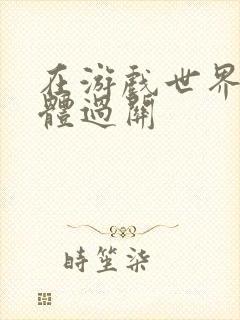 在游戏世界
體過關
時笙柒